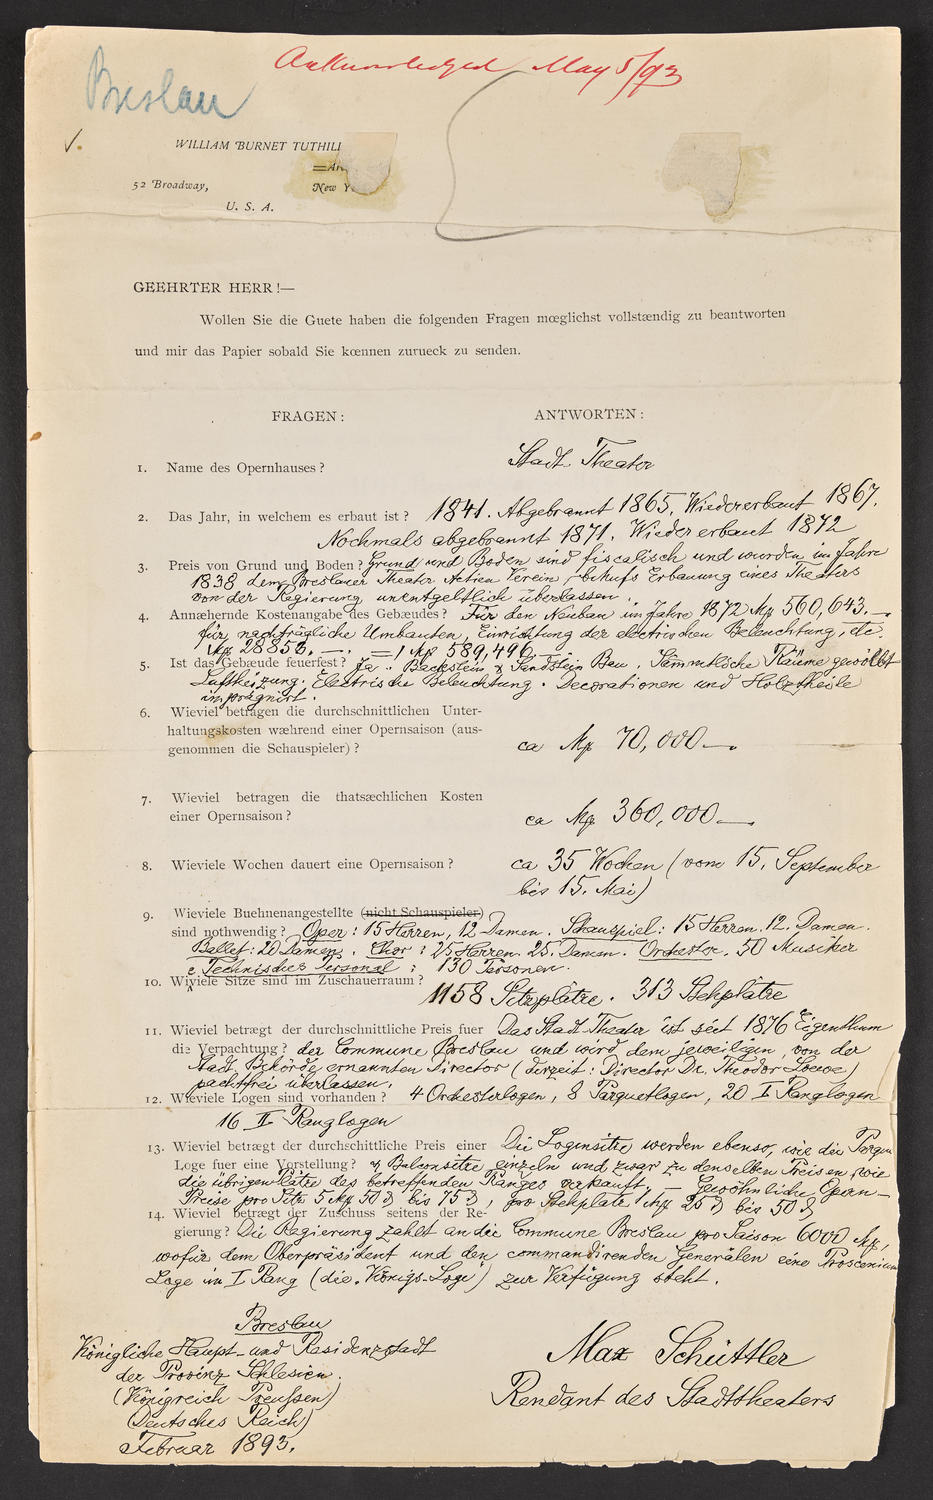 Acknowledged May 5/93
Breslau
WILLIAM BURNET TUTHILL
52 Broadway,
New Y
U. S. A.
GEEHRTER HERR!—
Wollen Sie die Guete haben die folgenden Fragen mœglichst vollstændig zu beantworten
und mir das Papier sobald Sie kœnnen zurueck zu senden.
FRAGEN: ANTWORTEN:
1. Name des Opernhauses? Stadt-Theater
2. Das Jahr, in welchem es erbaut ist? 1841. Abgebrannt 1865, Wiedererbaut 1867.
Nochmals abgebrannt 1871. Wiedererbaut 1872
3. Preis von Grund und Boden? Grund und Boden sind fiscalisch und wurden im Jahre
1838 dem Breslauer Theater Actien Verein, behufs Erbauung eines Theaters
von der Regierung unentgeltlich überlassen.
4. Annæhernde Kostenangabe des Gebæudes? Für den Neubau im Jahre 1872 Mk 560,643.—
für nachträgliche Umbauten, Einrichtung der electrischen Beleuchtung, etc.
Mk 28853.—. = Mk 589,496.—
5. Ist das Gebæude feuerfest? Ja. Backstein & Sandstein Bau. Sämmtliche Räume gewölbt
Luftheizung. Electrische Beleuchtung. Decorationen und Holztheile
imprägnirt.
6. Wieviel betragen die durchschnittlichen Unter-
haltungskosten wæhrend einer Opernsaison (aus-
genommen die Schauspieler)? ca Mk 70,000—.
7. Wieviel betragen die thatsæchlichen Kosten
einer Opernsaison? ca Mk 360,000—.
8. Wieviele Wochen dauert eine Opernsaison? ca 35 Wochen (vom 15. September
bis 15. Mai)
9. Wieviele Buehnenangestellte (nicht Schauspieler)
sind nothwendig? Oper: 15 Herren, 12 Damen. Schauspiel: 15 Herren, 12. Damen.
Ballet: 20 Damen. Chor: 25 Herren. 25. Damen. Orchester. 50 Musiker
Technisches Personal: 130 Personen.
10. Wieviele Sitze sind im Zuschauerraum? 1158 Sitzplätze. 313 Stehplätze
11. Wieviel betrægt der durchschnittliche Preis fuer Das Stadt-Theater ist seit 1876 Eigenthum
die Verpachtung? der Commune Breslau und wird dem jeweiligen, von der
Stadt. Behörde ernannten Director (derzeit: Director Dr. Theodor Loewe)
pachtfrei überlassen.
12. Wieviele Logen sind vorhanden? 4 Orchesterlogen, 8 Parquetlogen, 20 I Ranglogen
16 II Ranglogen
13. Wieviel betrægt der durchschnittliche Preis einer Die Logensitze werden ebenso, wie die
Loge fuer eine Vorstellung? & Balconsitze einzeln und zwar zu denselben Preisen, wie
die übrigen Plätze des betreffenden Ranges verkauft. — Gewöhnliche Opern-
Preise pro Sitz 5 Mk 50 ₰ bis 75 ₰, pro Stehplatz 1 Mk 25 ₰ bis 50 ₰
14. Wieviel betrægt der Zuschuss seitens der Re-
gierung? Die Regierung zahlt an die Commune Breslau pro Saison 6000 Mk,
wofür dem Oberpräsident und den commandirenden Generälen eine Proscenium
Loge im I Rang (die „Königs-Loge") zur Verfügung steht.
Breslau
Königliche Haupt- und Residenzstadt
der Provinz Schlesien.
(Königreich Preußen)
(Deutsches Reich)
Februar 1893.
Max Schüttler
Rendant des Stadttheaters